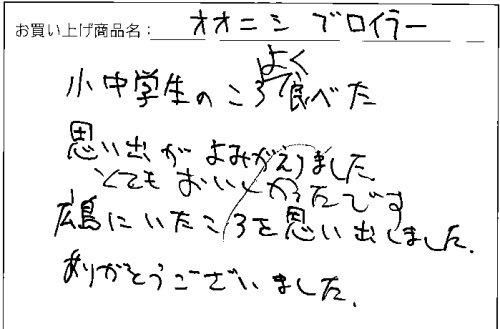 お買い上げ商品名: オオニシ ブロイラー
小中学生のころよく食べた
思い出がよみがえりました
とてもおいしかったです
広島にいたころを思い出しました.
ありがとうございました.